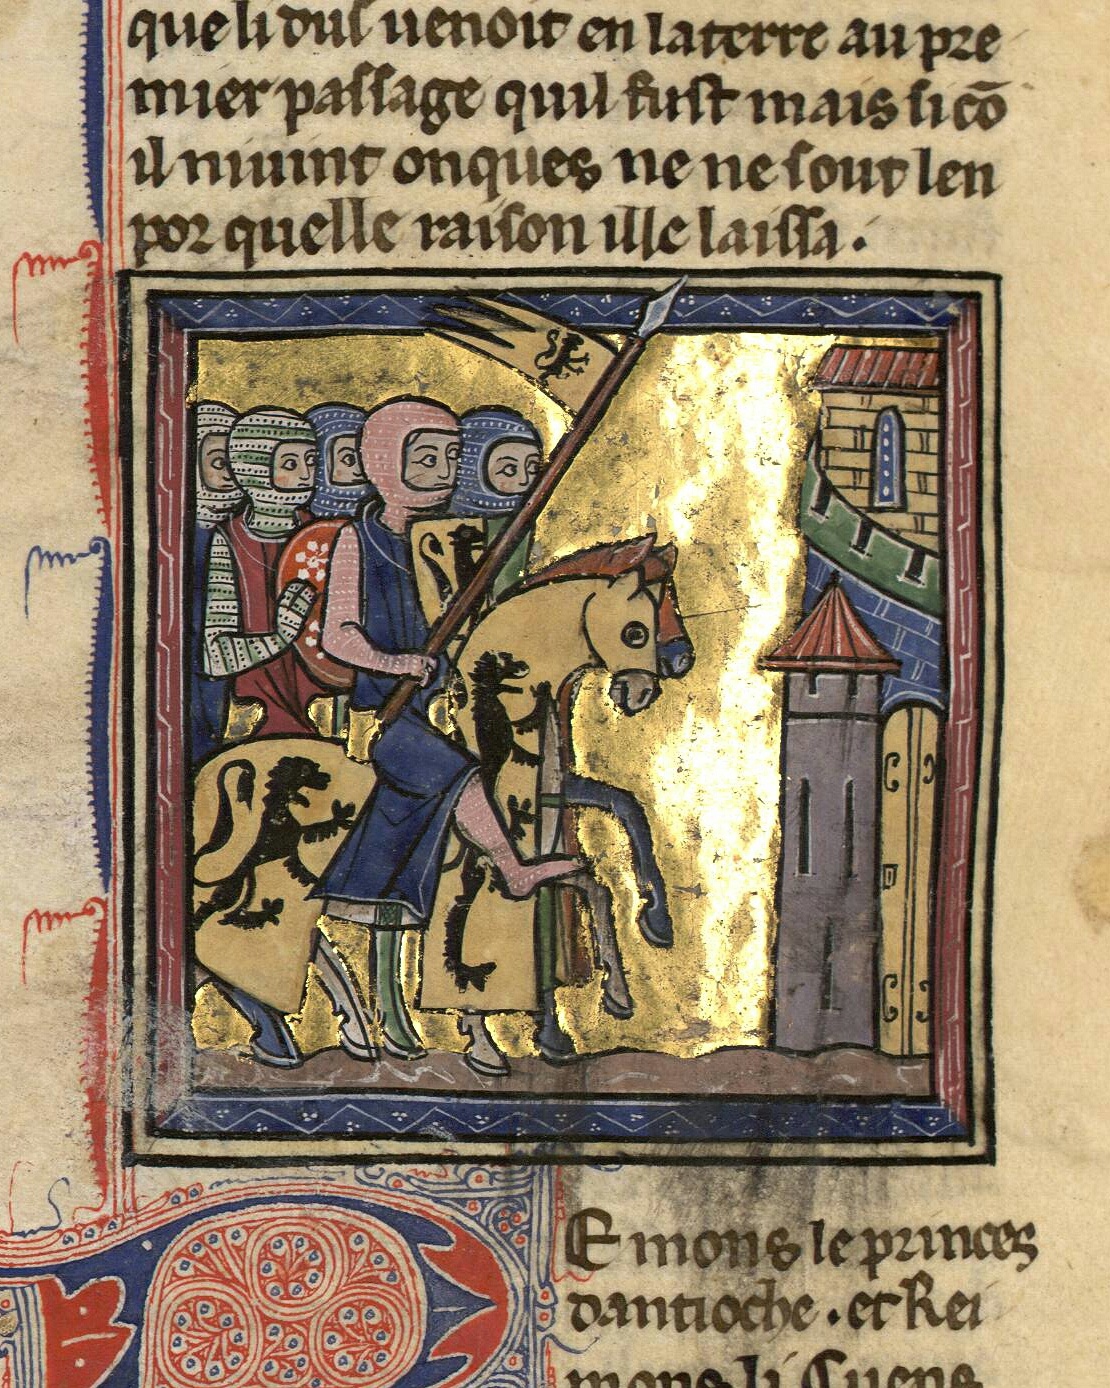 que li dus uenoit en la terre au pre
mier passage quil fust mais si cō
il niuint onques ne ne sout len
por quelle raison il le laissa.
Emons le princes
dantioche . et Rei
mons li Cuens